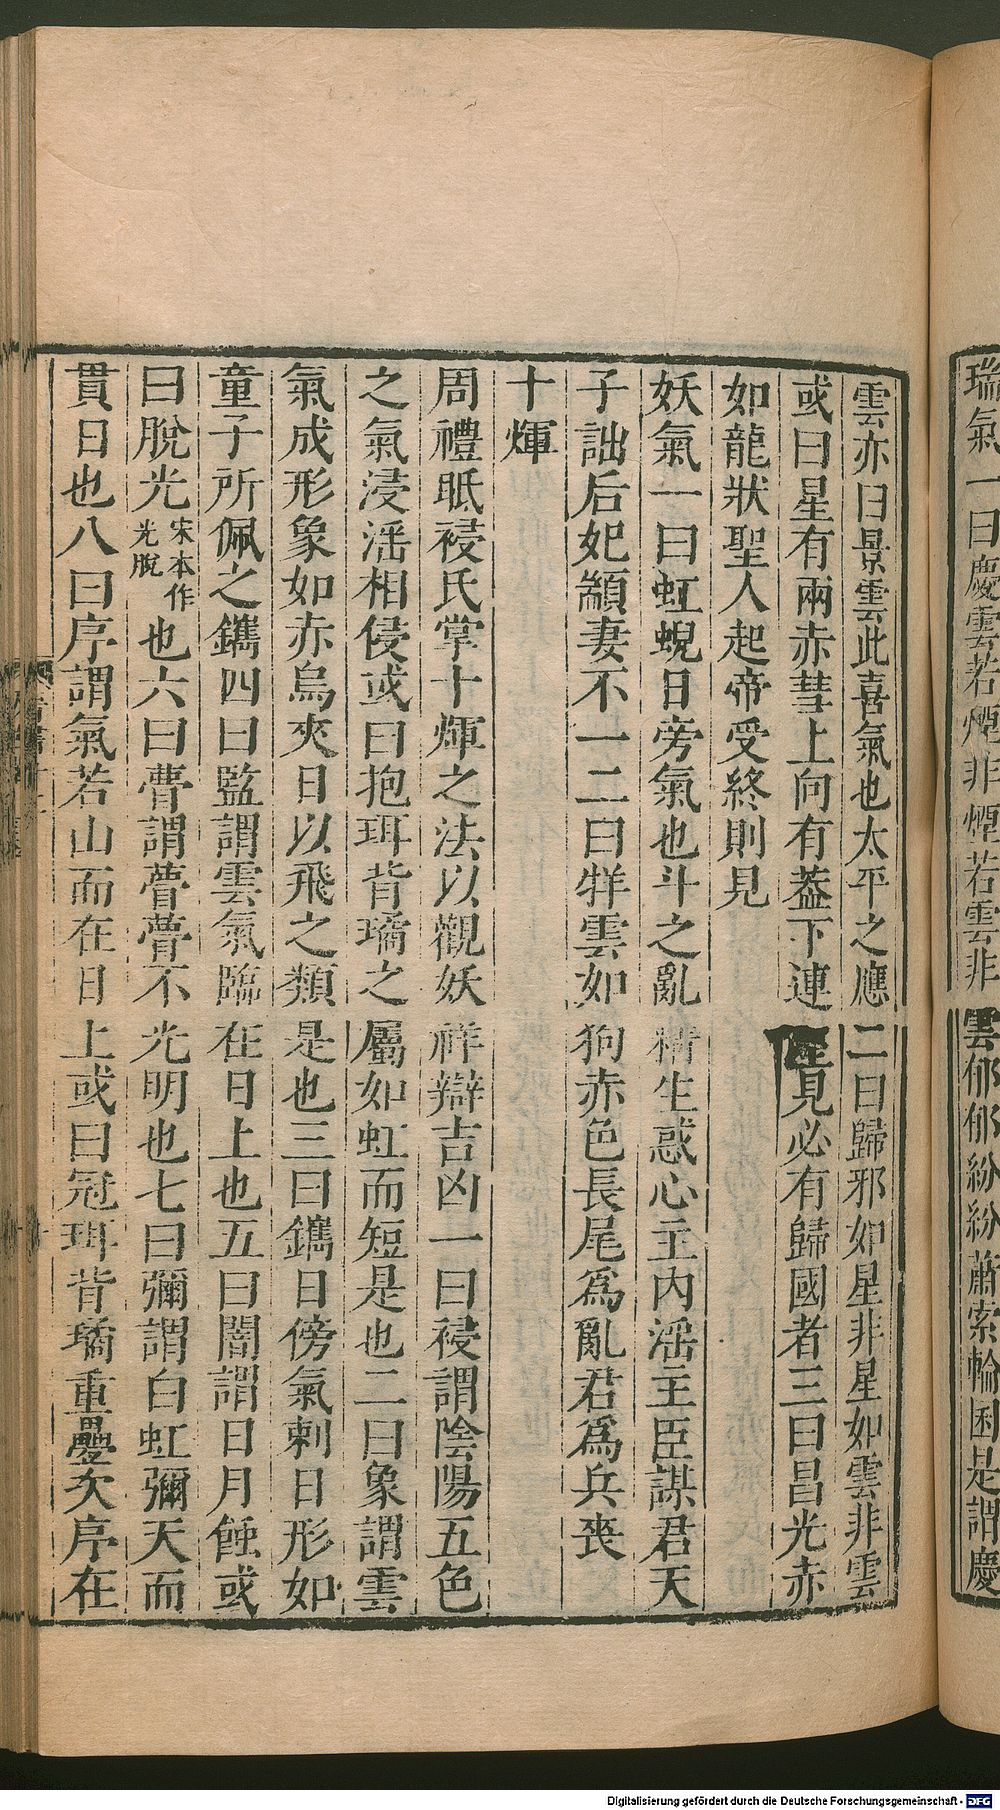 瑞氣一曰慶雲若煙非煙若雲非雲郁郁紛紛蕭索輪囷是謂慶
雲亦曰景雲此喜氣也太平之應二曰歸邪如星非星如雲非雲
或曰星有兩赤彗上向有葢下連星見必有歸國者三曰昌光赤
如龍狀聖人起帝受終則見
妖氣一曰虹蜺日旁氣也斗之亂精生惑心主內淫主臣謀君天
子詘后妃顓妻不一二曰牂雲如狗赤色長尾爲亂君爲兵喪
十煇
周禮眡祲氏掌十煇之法以觀妖祥辯吉凶一曰祲謂陰陽五色
之氣浸淫相侵或曰抱珥背璚之屬如虹而短是也二曰象謂雲
氣成形象如赤烏夾日以飛之類是也三曰鑴日傍氣刺日形如
童子所佩之鑴四曰監謂雲氣臨在日上也五曰闇謂日月蝕或
曰脫光宋本作光脫也六曰瞢謂瞢瞢不光明也七曰彌謂白虹彌天而
貫日也八曰序謂氣若山而在日上或曰冠珥背璚重疊次序在
晉書十二
Digitalisierung gefördert durch die Deutsche Forschungsgemeinschaft - DFG